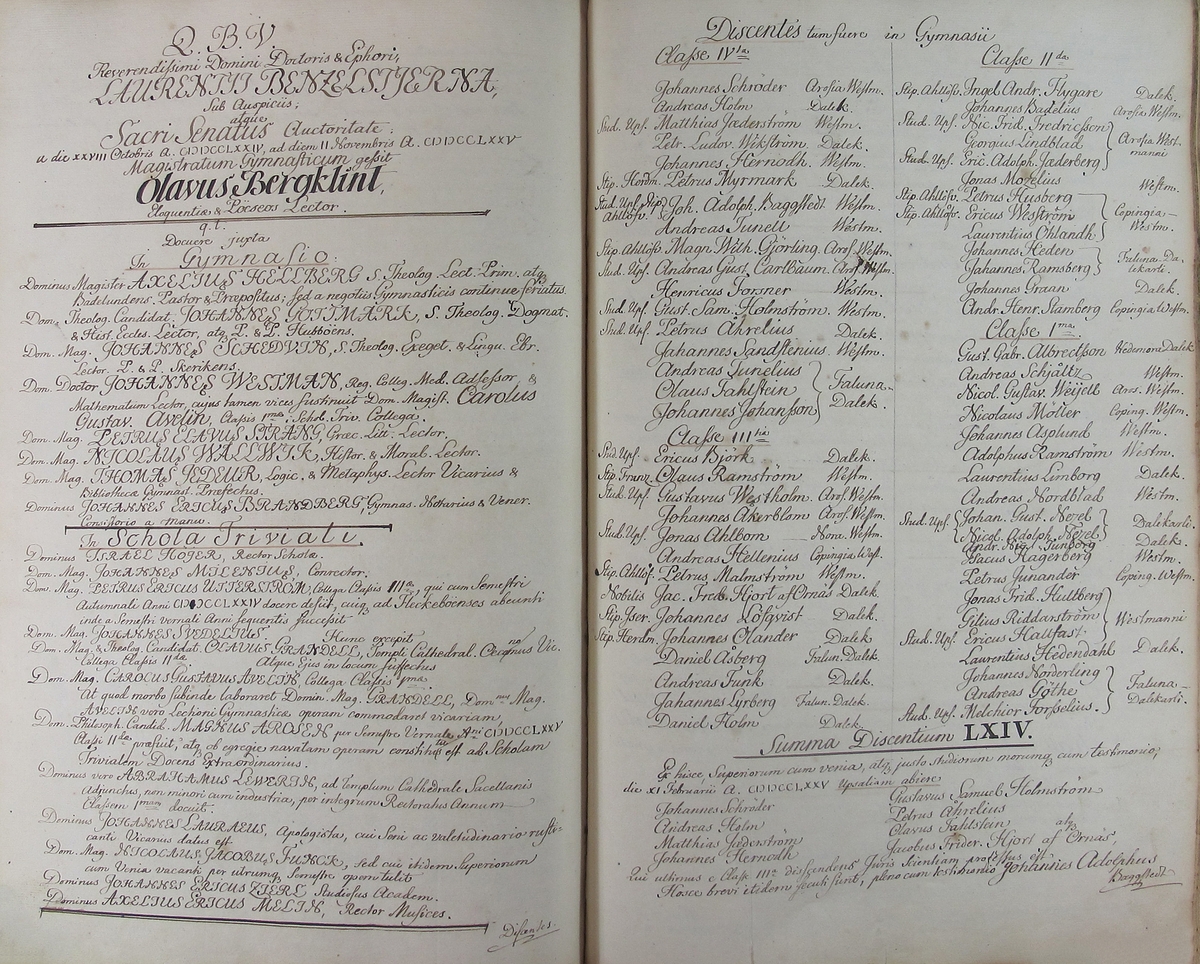 Q. B. V.
Reverendissimi Domini Doctoris & Ephori,
LAURENTII BENZELSTJERNA,
Sub Auspiciis;
atque
Sacri Senatus Auctoritate;
a die XXVIII Octobris A. CIƆIƆCCLXXIV, ad diem 11 Novembris A. CIƆIƆCCLXXV
Magistratum Gymnasticum gessit
Olavus Bergklint,
Eloquentiæ & Poëseos Lector.
q.t.
Docuere juxta
In Gymnasio:
Dominus Magister AXELIUS HELLBERG S. Theolog. Lect. Prim. atq;
Badelundens. Pastor & Præpositus, sed a negotiis Gymnasticis continue feriatus.
Dom. Theolog. Candidat. JOHANNES GOTTMARK, S. Theolog. Dogmat.
& Hist. Eccles. Lector, atq; P. & P. Hubboëns.
Dom. Mag. JOHANNES SCHEDVIN, S. Theolog. Exeget. & Lingu. Ebr.
Lector. P. & P. Skerikens.
Dom. Doctor JOHANNES WESTMAN, Reg. Colleg. Med. Adsessor, &
Mathematum Lector, cujus tamen vices sustinuit Dom. Magist. Carolus
Gustav. Avelin, Classis 1mæ Schol. Triv. Collega.
Dom. Mag. PETRUS ELAVUS STRANG, Græc. Litt. Lector.
Dom. Mag. NICOLAUS WALLWIK, Histor. & Moral. Lector.
Dom. Mag. THOMAS FEDEUR, Logic. & Metaphys. Lector Vicarius &
Bibliothecæ Gymnast. Præfectus.
Dominus JOHANNES ERICUS BRANDBERG Gymnas. Notarius & Vener.
Consistorio a manu.
In Schola Triviali.
Dominus ISRAEL HÖJER, Rector Scholæ.
Dom. Mag. JOHANNES MILENIUS, Conrector.
Dom. Mag. PETRUS ERICUS UTTERSTRÖM, Collega Classis IIIæ, qui cum Semestri
Autumnali Anni CIƆIƆCCLXXIV docere desiit, cuiq; ad Heckeboënses abeunti
inde a Semestri vernali Anni sequentis successit
Dom. Mag. JOHANNES SVEDELIUS. Hunc excepit
Dom. Mag. & Theolog. Candidat. OLAVUS GRANDELL, Templi Cathedral. Vic.
Collega Classis IIdæ Atque Ejus in locum suffectus
Dom. Mag. CAROLUS GUSTAVUS AVELIN, Collega Classis 1mæ
At quod morbo subinde laboraret Domin. Mag. GRANDELL, Domnus Mag.
AVELIN vero Lectioni Gymnasticæ operam commodaret vicariam,
Dom. Philosoph. Candid. MAGNUS AROSEN per Semestre Vernale Ani CIƆIƆCCLXXV
Classi IIdæ præfuit, atq; ob egregie navatam operam constitutus est ad Scholam
Trivialem Docens Extraordinarius.
Dominus vero ABRAHAMUS LEWERIN, ad Templum Cathedrale Sacellanis
Adjunctus, non minori cum industria, per integrum Rectoratus Annum
Classem 1mam docuit.
Dominus JOHANNES LAURAEUS, Apologista, cui Seni ac valetudinario rusti-
canti Vicarius datus est
Dom. Mag. NICOLAUS JACOBUS FUNCK, sed cui itidem Superiorum
cum Venia vacanti per utrumq; Semestre opem tulit
Dominus JOHANNES ERICUS ZIERL, Studiosus Academ.
Dominus AXELIUS ERICUS MELIN, Rector Musices.
Discentes
Discentes tum fuere in Gymnasii
Classe IVta
Johannes Schröder Arosia Westm.
Andreas Holm Dalek.
Stud. Ups. Matthias Jæderström Westm.
Petr. Ludov. Wikström Dalek.
Johannes Hernodh Westm.
Stip. Herdm. Petrus Myrmark Dalek.
Stud. Ups. Stip. Ahllöfv. Joh. Adolph. Baggstedt Westm.
Andreas Tunell Westm.
Stip. Ahllöfv. Magn. Wilh. Gjörling Aros. Westm.
Stud. Ups. Andreas Gust. Carlbaum Aros. Westm.
Henricus Forsner Westm.
Stud. Ups. Gust. Sam. Holmström Westm.
Stud. Ups. Petrus Ahrelius Dalek.
Jahannes Sandstenius Westm.
Andreas Junelius
Olaus Fahlstein
Johannes Johansson
Faluna-
Dalek.
Classe IIItia
Stud. Ups. Ericus Björk Dalek.
Stip. Franz. Claus Ramström Westm.
Stud. Ups. Gustavus Westholm Aros. Westm.
Johannes Åkerblom Aros. Westm.
Stud. Ups. Jonas Ahlborn Nora. Westm.
Andreas Hellenius Copingia West.
Stip. Ahllöf. Petrus Malmström Westm.
Nobilis Jac. Fredr. Hjort af Ornäs Dalek.
Stip. Iser. Johannes Löfqvist Dalek.
Stip. Herdm. Johannes Olander Dalek
Daniel Åsberg Falun. Dalek.
Andreas Funk Dalek.
Jahannes Lyrberg Falun. Dalek.
Daniel Holm Dalek.
Classe IIda
Stip. Ahllöf. Ingel Andr. Flygare Dalek.
Johannes Badelius Arosia Westm.
Stud. Ups. Nic. Frid. Fredricsson
Georgius Lindblad
Stud. Ups. Eric. Adolph. Jæderberg
Arosia West-
manni
Jonas Morelius Westm.
Stip. Ahllöfv. Petrus Husberg
Stip. Ahllöfv. Ericus Weström
Laurentius Ohlandh
Copingia-
Westm.
Johannes Heden
Jahannes Ramsberg
Faluna-Da-
lekarli.
Johannes Graan Dalek.
Andr. Henr. Stamberg Copingia Westm.
Classe 1ma
Gust. Gabr. Albrectson Hedemora Dalek
Andreas Schjältz Westm.
Nicol. Gustav. Weijell Aros. Westm.
Nicolaus Möller Coping. Westm.
Johannes Asplund Westm.
Adolphus Ramström Westm.
Laurentius Limborg Dalek.
Andreas Nordblad Westm.
Stud. Ups. Johan. Gust. Norel
Nicol. Adolph. Norel
Dalekarli.
Andr. Nic. Junborg Dalek.
Isacus Hagerberg Westm.
Petrus Junander Coping. Westm.
Jonas Frid. Hultberg
Gilius Riddarström
Stud. Ups. Ericus Hallfast
Westmanni
Laurentius Hedendahl Dalek.
Johannes Norderling
Andreas Göthe
Stud. Ups. Melchior Forsselius
Faluna-
Dalekarli.
Summa Discentium LXIV.
Ex hisce, Superiorum cum venia, atq; justo studiorum morumq; cum testimonio,
die XI Februarii A. CIƆIƆCCLXXV Upsaliam abiere
Johannes Schröder
Andreas Holm
Matthias Jæderström
Johannes Hernodh
Gustavus Samuel Holmström
Petrus Ahrelius
Olavus Fahlstein atq;
Jacobus Frider. Hjort af Ornäs,
Qui ultimus e Classe IIItia discedens Juris scientiam professus est.
Hosce brevi itidem secuti sunt, pleno cum testimonio Johannes Adolphus
Baggstedt